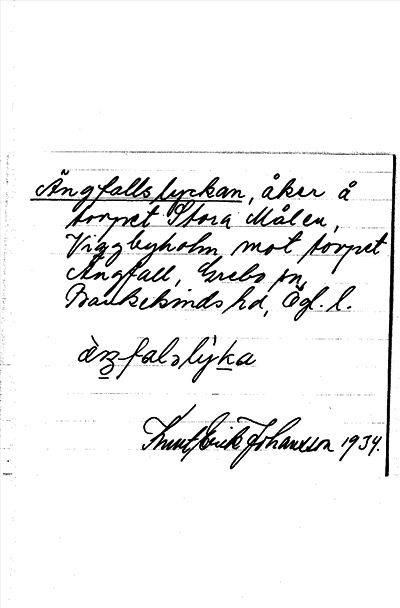 Ängfallslyckan, åker å
torpet Stora Målen,
Viggbyholm, mot torpet
Ängfall, Grebo sn,
Bankekinds hd, Ögl. l.
Knut Erik Johansson 1934.